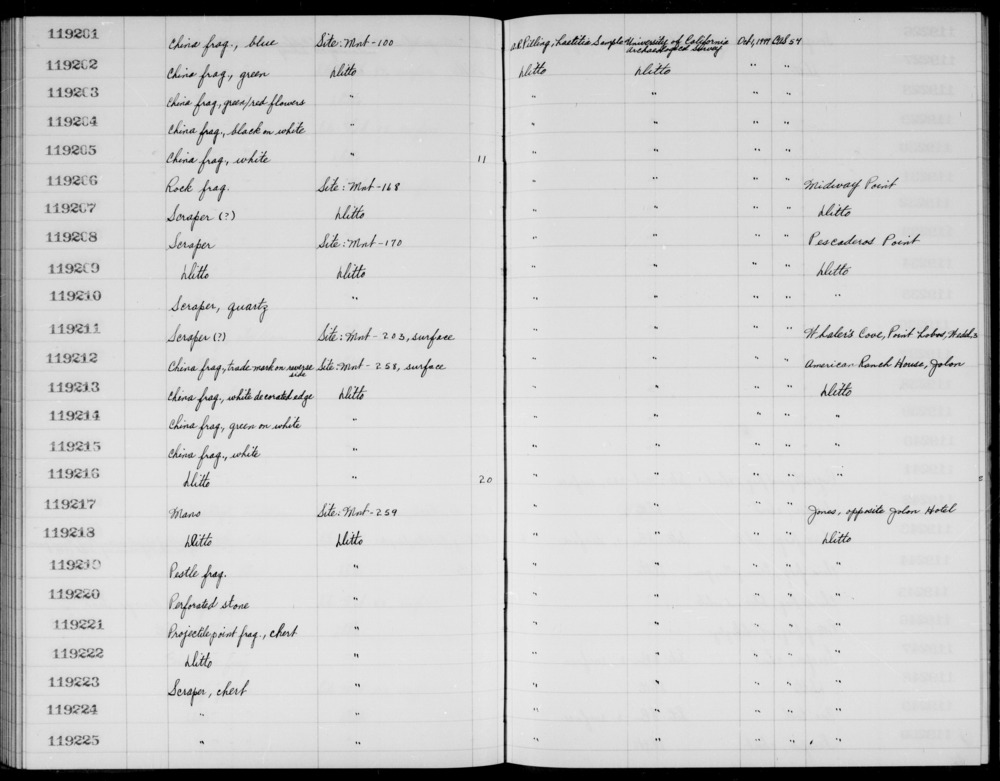 119201 China frag., blue Site: Mnt-100 A.R. Pilling, Laetitia Sample University of California Archaeological Survey Oct 1, 1949 UAS 54
119202 China frag., green Ditto Ditto Ditto " "
119203 China frag., green/red flowers " " " " "
119204 China frag., black on white " " " " "
119205 China frag., white " 11 " " " "
119206 Rock frag. Site: Mnt-168 " " " " Midway Point
119207 Scraper (?) Ditto " " " " Ditto
119208 Scraper Site: Mnt-170 " " " " Pescaderos Point
119209 Ditto Ditto " " " " Ditto
119210 Scraper, quartz " " " " " "
119211 Scraper (?) Site: Mnt-203, surface " " " " Whaler's Cove, Point Lobos,
119212 China frag., trade mark on reverse side Site: Mnt-258, surface " " " " American Ranch House, Jolon
119213 China frag., white decorated edge Ditto " " " " Ditto
119214 China frag., green on white " " " " " "
119215 China frag., white " " " " " "
119216 Ditto " 20 " " " " "
119217 Mano Site: Mnt-259 " " " " Jones, opposite Jolon Hotel
119218 Ditto Ditto " " " " Ditto
119219 Pestle frag. " " " " " "
119220 Perforated stone " " " " " "
119221 Projectile point frag., chert " " " " " "
119222 Ditto " " " " " "
119223 Scraper, chert " " " " " "
119224 " " " " " " "
119225 " " " " " " "